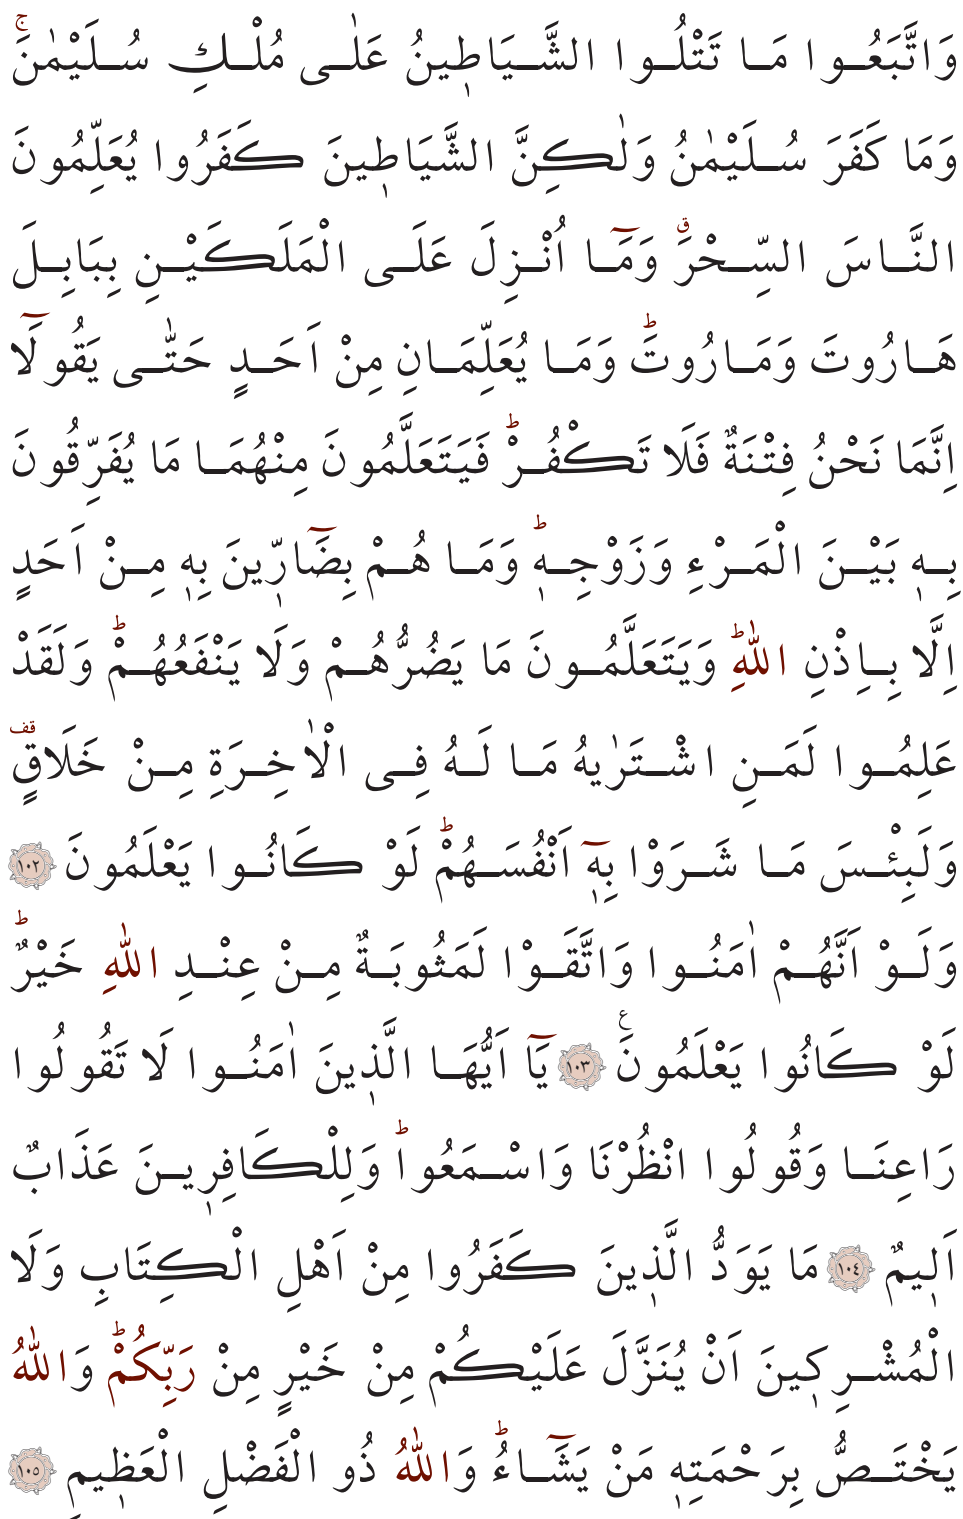 وَاتَّبَعُوا مَا تَتْلُوا الشَّيَاط۪ينُ عَلٰى مُلْكِ سُلَيْمٰنَۚ
وَمَا كَفَرَ سُلَيْمٰنُ وَلٰكِنَّ الشَّيَاط۪ينَ كَفَرُوا يُعَلِّمُونَ
النَّاسَ السِّحْرَۗ وَمَٓا اُنْزِلَ عَلَى الْمَلَكَيْنِ بِبَابِلَ
هَارُوتَ وَمَارُوتَۜ وَمَا يُعَلِّمَانِ مِنْ اَحَدٍ حَتّٰى يَقُولَٓا
اِنَّمَا نَحْنُ فِتْنَةٌ فَلَا تَكْفُرْۜ فَيَتَعَلَّمُونَ مِنْهُمَا مَا يُفَرِّقُونَ
بِه۪ بَيْنَ الْمَرْءِ وَزَوْجِه۪ۜ وَمَا هُمْ بِضَٓارّ۪ينَ بِه۪ مِنْ اَحَدٍ
اِلَّا بِاِذْنِ اللّٰهِۜ وَيَتَعَلَّمُونَ مَا يَضُرُّهُمْ وَلَا يَنْفَعُهُمْۜ وَلَقَدْ
عَلِمُوا لَمَنِ اشْتَرٰيهُ مَا لَهُ فِى الْاٰخِرَةِ مِنْ خَلَاقٍۗ
وَلَبِئْسَ مَا شَرَوْا بِه۪ٓ اَنْفُسَهُمْۜ لَوْ كَانُوا يَعْلَمُونَ ﴿١٠٢﴾
وَلَوْ اَنَّهُمْ اٰمَنُوا وَاتَّقَوْا لَمَثُوبَةٌ مِنْ عِنْدِ اللّٰهِ خَيْرٌۜ
لَوْ كَانُوا يَعْلَمُونَ۟ ﴿١٠٣﴾ يَٓا اَيُّهَا الَّذ۪ينَ اٰمَنُوا لَا تَقُولُوا
رَاعِنَا وَقُولُوا انْظُرْنَا وَاسْمَعُواۜ وَلِلْكَافِر۪ينَ عَذَابٌ
اَل۪يمٌ ﴿١٠٤﴾ مَا يَوَدُّ الَّذ۪ينَ كَفَرُوا مِنْ اَهْلِ الْكِتَابِ وَلَا
الْمُشْرِك۪ينَ اَنْ يُنَزَّلَ عَلَيْكُمْ مِنْ خَيْرٍ مِنْ رَبِّكُمْۜ وَاللّٰهُ
يَخْتَصُّ بِرَحْمَتِه۪ مَنْ يَشَٓاءُۜ وَاللّٰهُ ذُو الْفَضْلِ الْعَظ۪يمِ ﴿١٠٥﴾